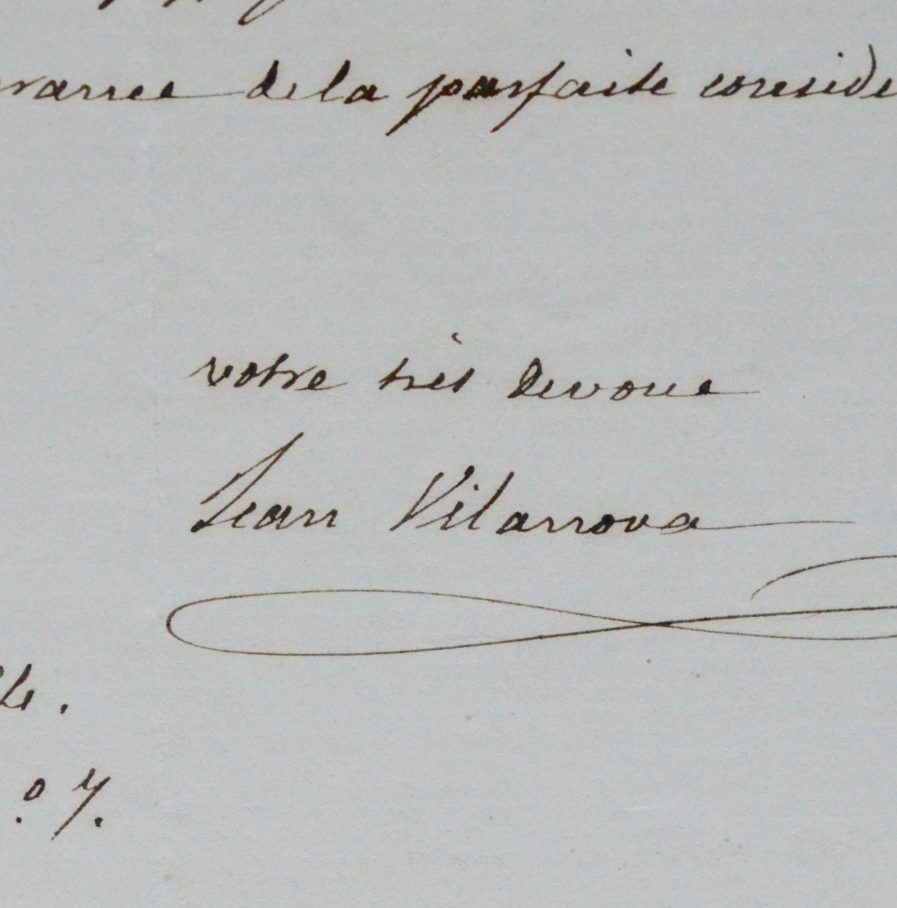 rance de la parfaite conside
votre très devoue
Jean Vilanova
º 7.